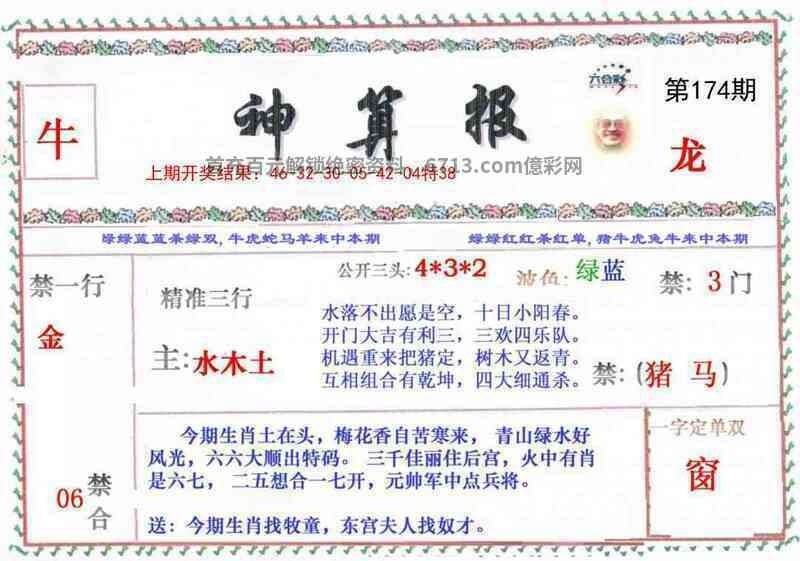 六合彩
第174期
牛
神算报
龙
首充百元解锁绝密资料，6713.com億彩网
上期开奖结果：46-32-30-05-42-04特38
绿绿蓝蓝杀绿双,牛虎蛇马羊来中本期
绿绿红红杀红单,猪牛虎兔牛来中本期
禁一行
金
精准三行
主:水木土
公开三头:4*3*2
波色:绿蓝
禁:3门
水落不出愿是空，十日小阳春。
开门大吉有利三，三欢四乐队。
机遇重来把猪定，树木又返青。
互相组合有乾坤，四大细通杀。
禁:(猪 马)
今期生肖土在头，梅花香自苦寒来， 青山绿水好
风光，六六大顺出特码。 三千佳丽住后宫，火中有肖
是六七， 二五想合一七开，元帅军中点兵将。
送：今期生肖找牧童，东宫夫人找奴才。
06禁合
一字定单双
窗